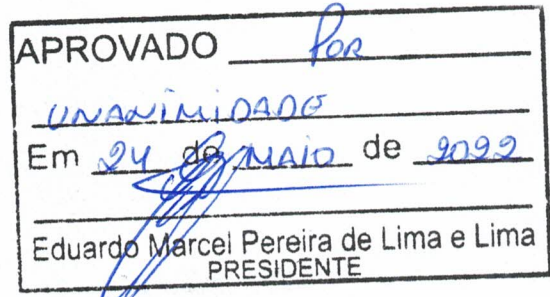 APROVADO Por
UNANIMIDADE
Em 24 de MAIO de 2022
Eduardo Marcel Pereira de Lima e Lima
PRESIDENTE